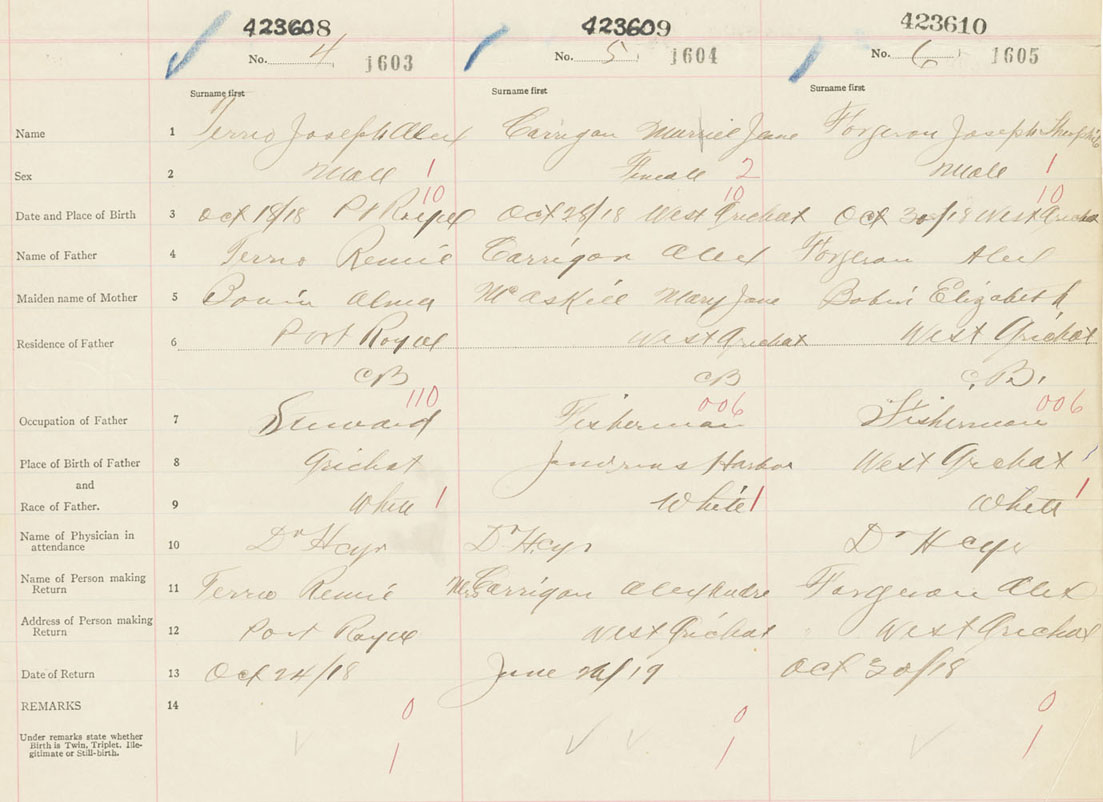 423608 423609 423610
No. 4 1603 No. 5 1604 No. 6 1605
Surname first Surname first Surname first
Name 1 Terrio Joseph Alex Carrigan Murriel Jane Forgeron Joseph Theophile
Sex 2 Male 1 Female 2 Male 1
10 10 10
Date and Place of Birth 3 Oct 18/18 Pt Royal Oct 28/18 West Arichat Oct 30/18 West Arichat
Name of Father 4 Terrio Remie Carrigan Alex Forgeron Alex
Maiden name of Mother 5 Boudin Alma McAskill Mary Jane Bobin Elizabeth
Residence of Father 6 Port Royal West Arichat West Arichat
CB CB C.B.
110 006 006
Occupation of Father 7 Steward Fisherman Fisherman
Place of Birth of Father 8 Arichat Janvrins Harbor West Arichat
and
Race of Father. 9 White 1 White 1 White 1
Name of Physician in
attendance 10 Dr Dr Dr
Name of Person making
Return 11 Terrio Remie Mrs Carrigan Alexandre Forgeron Alex
Address of Person making
Return 12 Port Royal West Arichat West Arichat
Date of Return 13 Oct 24/18 June /19 Oct 30/18
REMARKS 14 0 0 0
Under remarks state whether
Birth is Twin, Triplet, Ille-
gitimate or Still-birth. 1 1 1